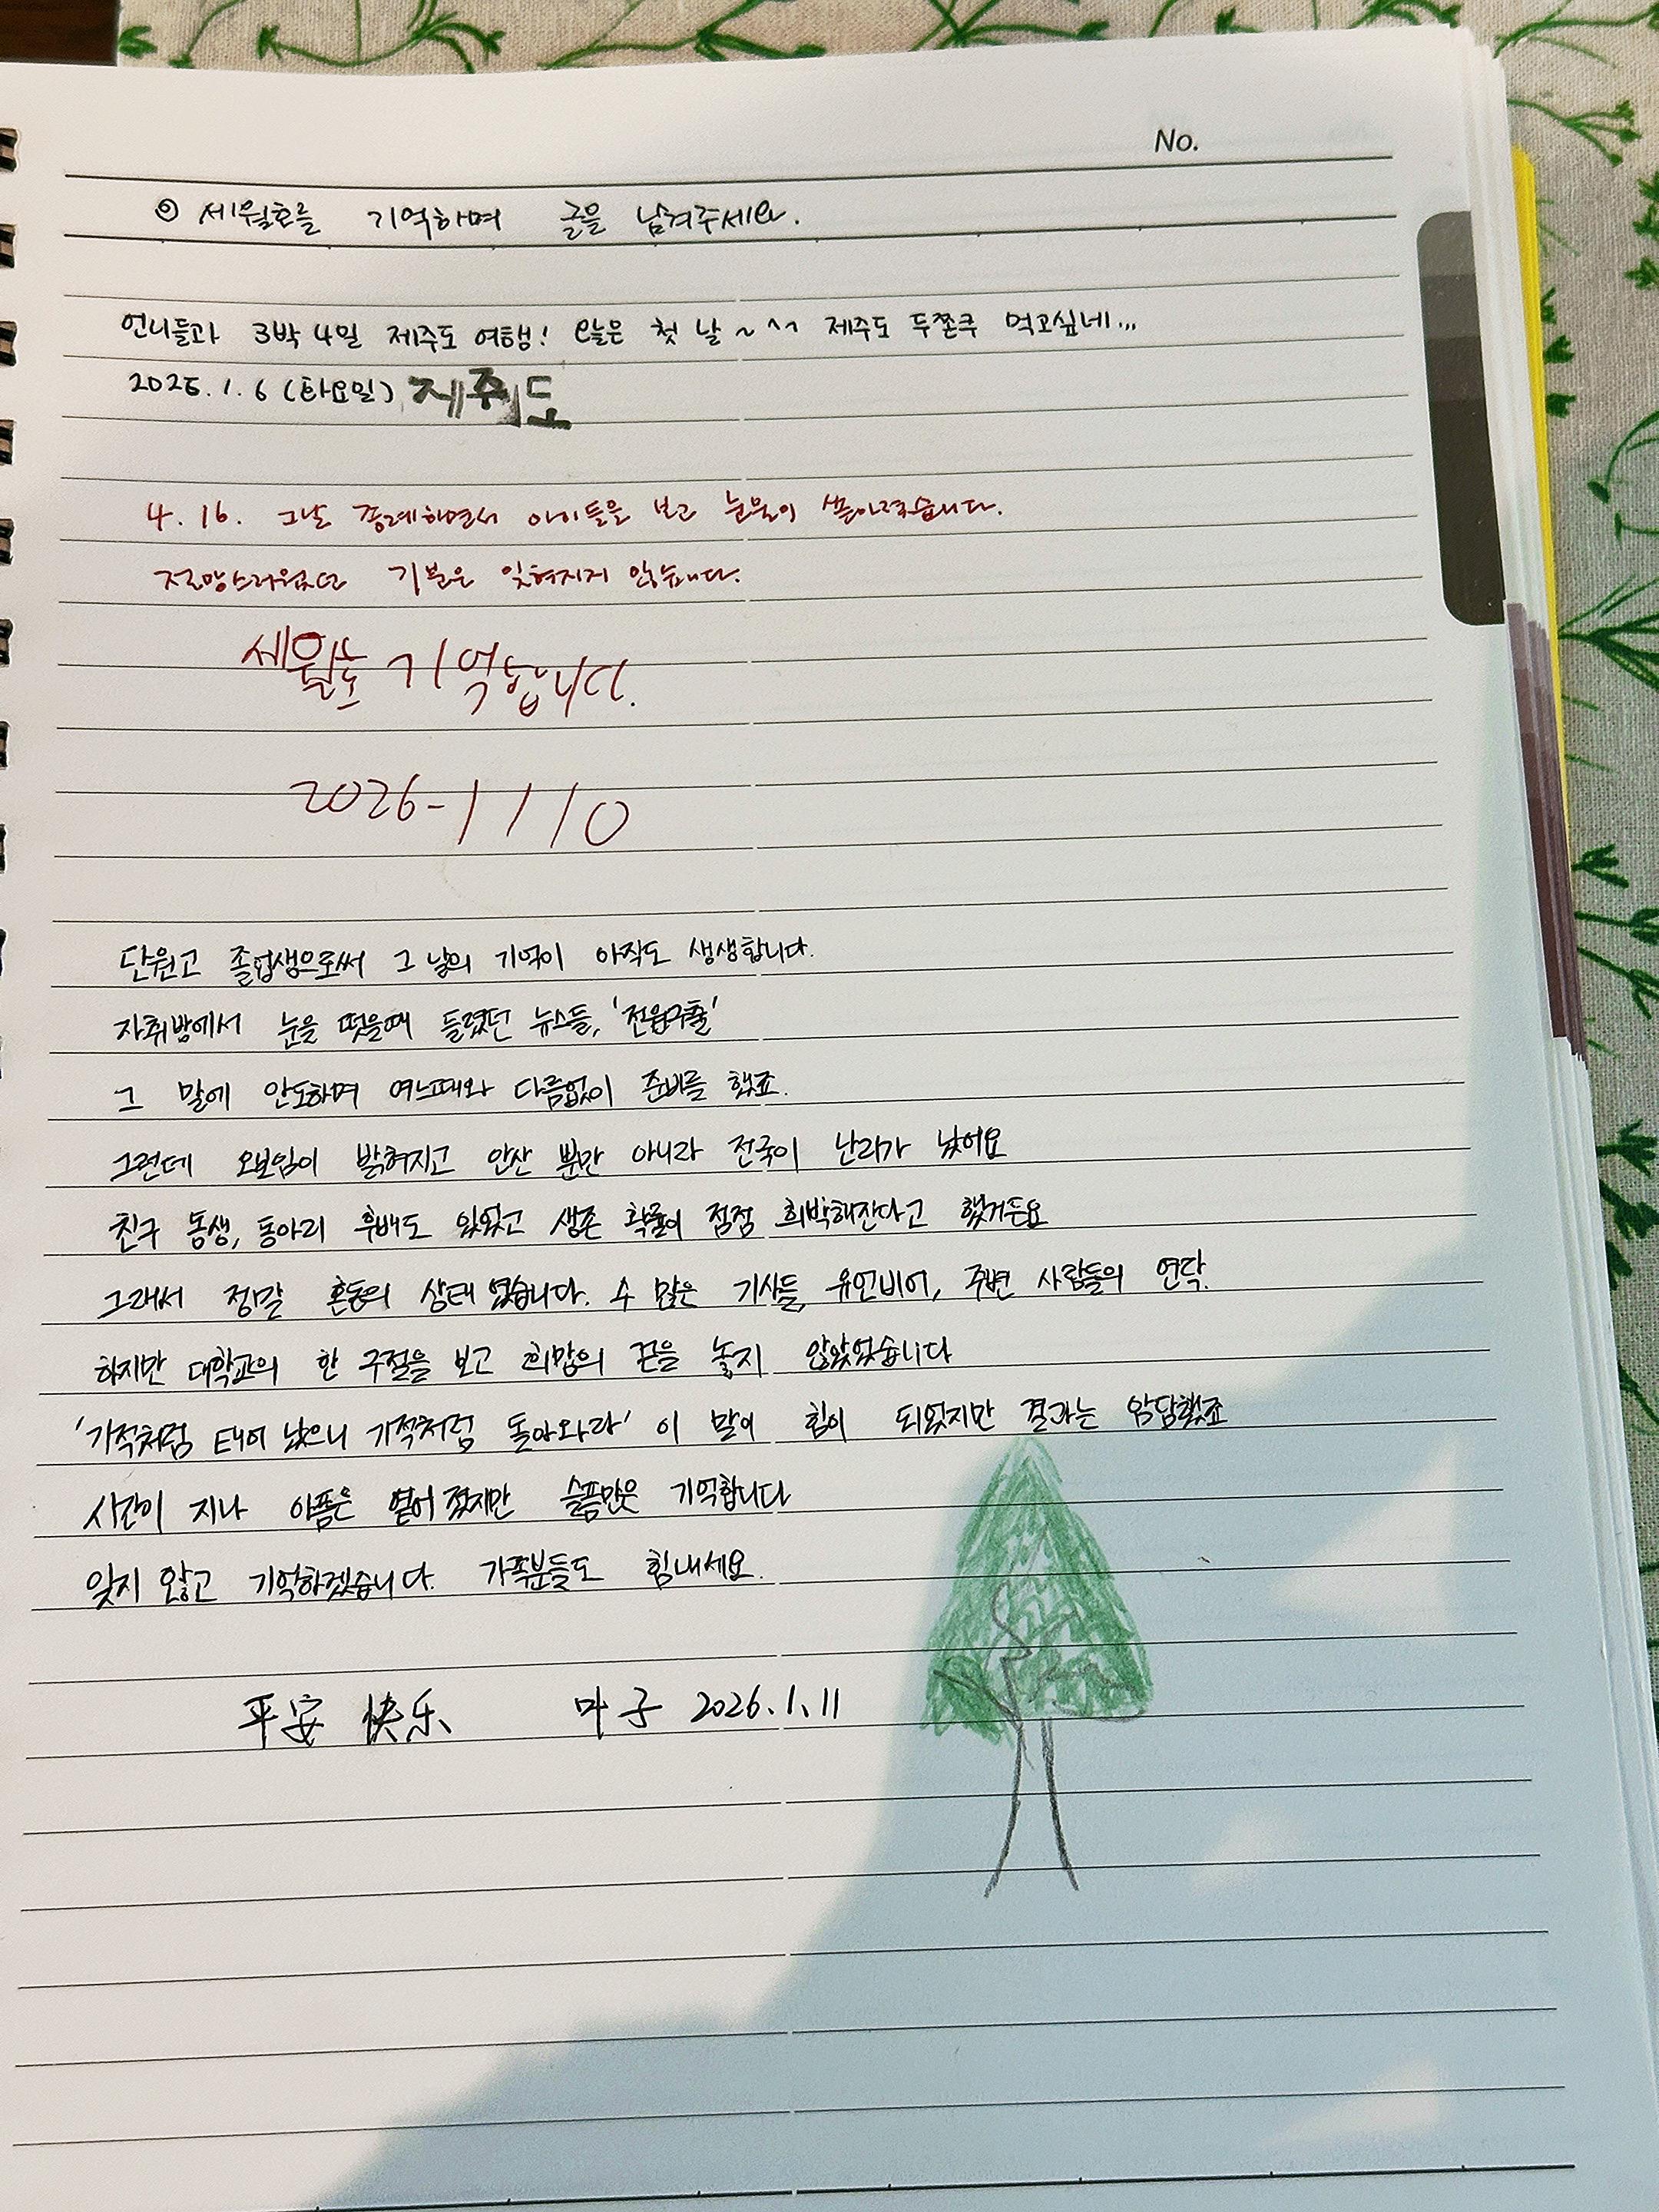 No.
◎ 세월호를 기억하며 글을 남겨주세요.
언니들과 3박 4일 제주도 여행! 오늘은 첫 날 ~ ^^ 제주도 두쫀쿠 먹고싶네...
2026. 1. 6 (화요일) 제주도
4. 16. 그날 종례하면서 아이들을 보고 눈물이 쏟아졌습니다.
절망스러웠던 기분은 잊혀지지 않습니다.
세월호 기억합니다.
2026-1/10
단원고 졸업생으로써 그 날의 기억이 아직도 생생합니다.
자취방에서 눈을 떴을때 들렸던 뉴스들, '전원구출'
그 말에 안도하며 여느때와 다름없이 준비를 했죠.
그런데 오보임이 밝혀지고 안산 뿐만 아니라 전국이 난리가 났어요
친구 동생, 동아리 후배도 있었고 생존 확률이 점점 희박해잔다고 했거든요
그래서 정말 혼동의 상태였습니다. 수 많은 기사들, 유언비어, 주변 사람들의 연락.
하지만 대학교의 한 구절을 보고 희망의 끈을 놓지 않았었습니다
'기적처럼 태어 났으니 기적처럼 돌아와라' 이 말이 힘이 되었지만 결과는 암담했죠
시간이 지나 아픔은 옅어 졌지만 슬픔만은 기억합니다
잊지 않고 기억하겠습니다. 가족분들도 힘내세요.
平安 快乐 叶子 2026.1.11